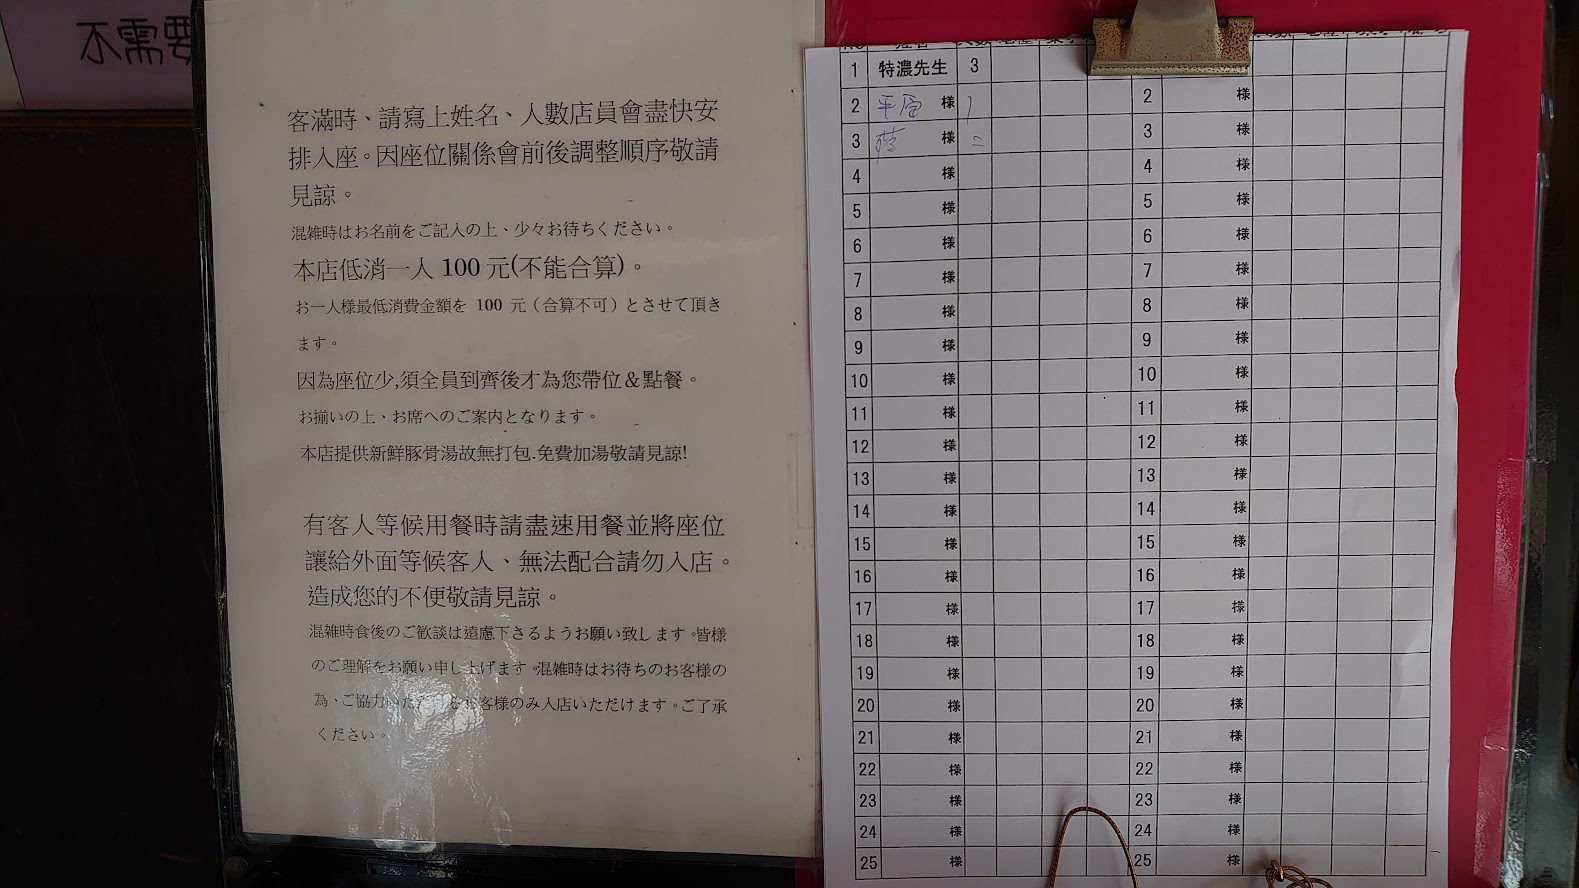 不需要
客滿時、請寫上姓名、人數店員會盡快安
排入座。因座位關係會前後調整順序敬請
見諒。
混雑時はお名前をご記入の上、少々お待ちください。
本店低消一人 100 元(不能合算)。
お一人様最低消費金額を 100 元（合算不可）とさせて頂き
ます。
因為座位少,須全員到齊後才為您帶位&點餐。
お揃いの上、お席へのご案内となります。
本店提供新鮮豚骨湯故無打包.免費加湯敬請見諒!
有客人等候用餐時請盡速用餐並將座位
讓給外面等候客人、無法配合請勿入店。
造成您的不便敬請見諒。
混雑時食後のご歓談は遠慮下さるようお願い致します。皆様
のご理解をお願い申し上げます。混雑時はお待ちのお客様の
為、ご協力いただ お客様のみ入店いただけます。ご了承
ください。
1 特濃先生 3
2 平 様 1 2 様
3 様 二 3 様
4 様 4 様
5 様 5 様
6 様 6 様
7 様 7 様
8 様 8 様
9 様 9 様
10 様 10 様
11 様 11 様
12 様 12 様
13 様 13 様
14 様 14 様
15 様 15 様
16 様 16 様
17 様 17 様
18 様 18 様
19 様 19 様
20 様 20 様
21 様 21 様
22 様 22 様
23 様 23 様
24 様 24 様
25 様 25 様